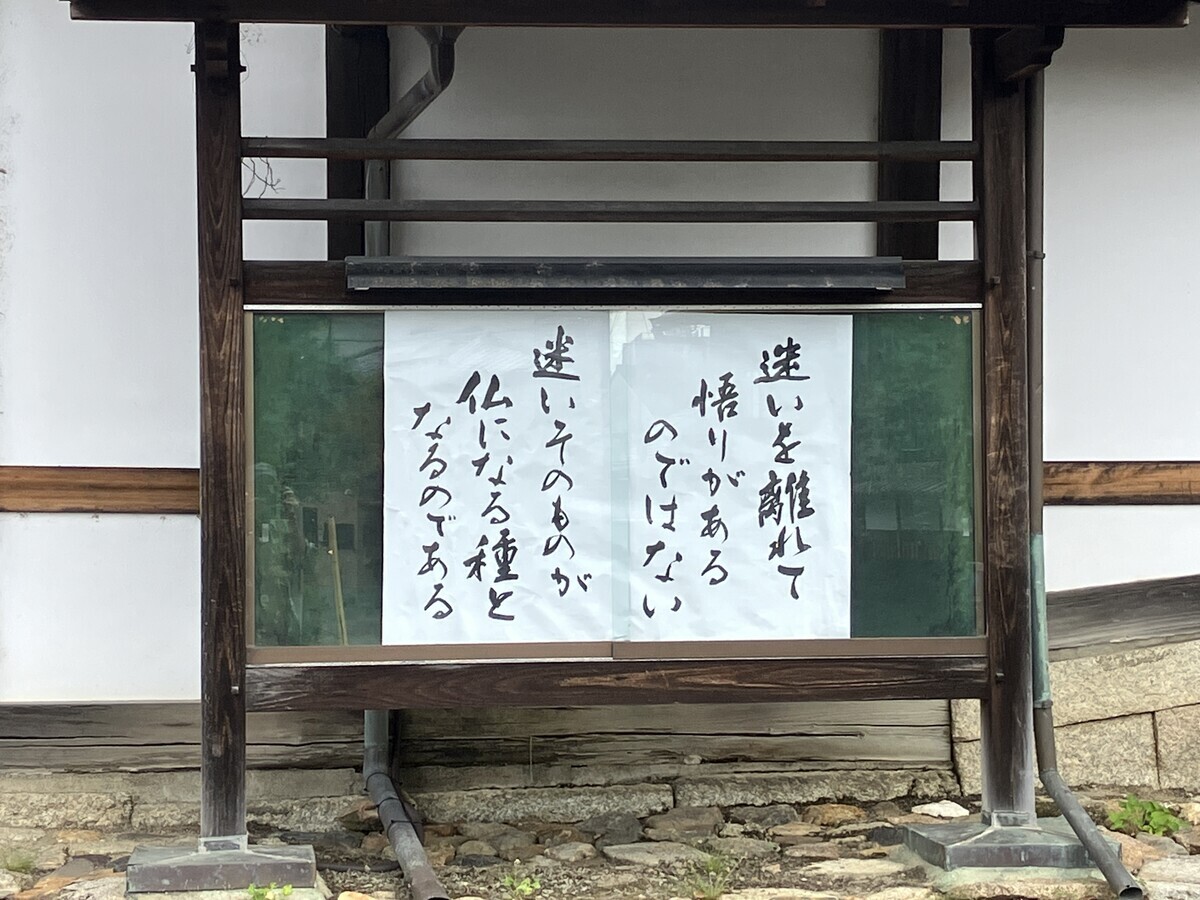 迷いを離れて
悟りがある
のではない
迷いそのものが
仏になる種と
なるのである